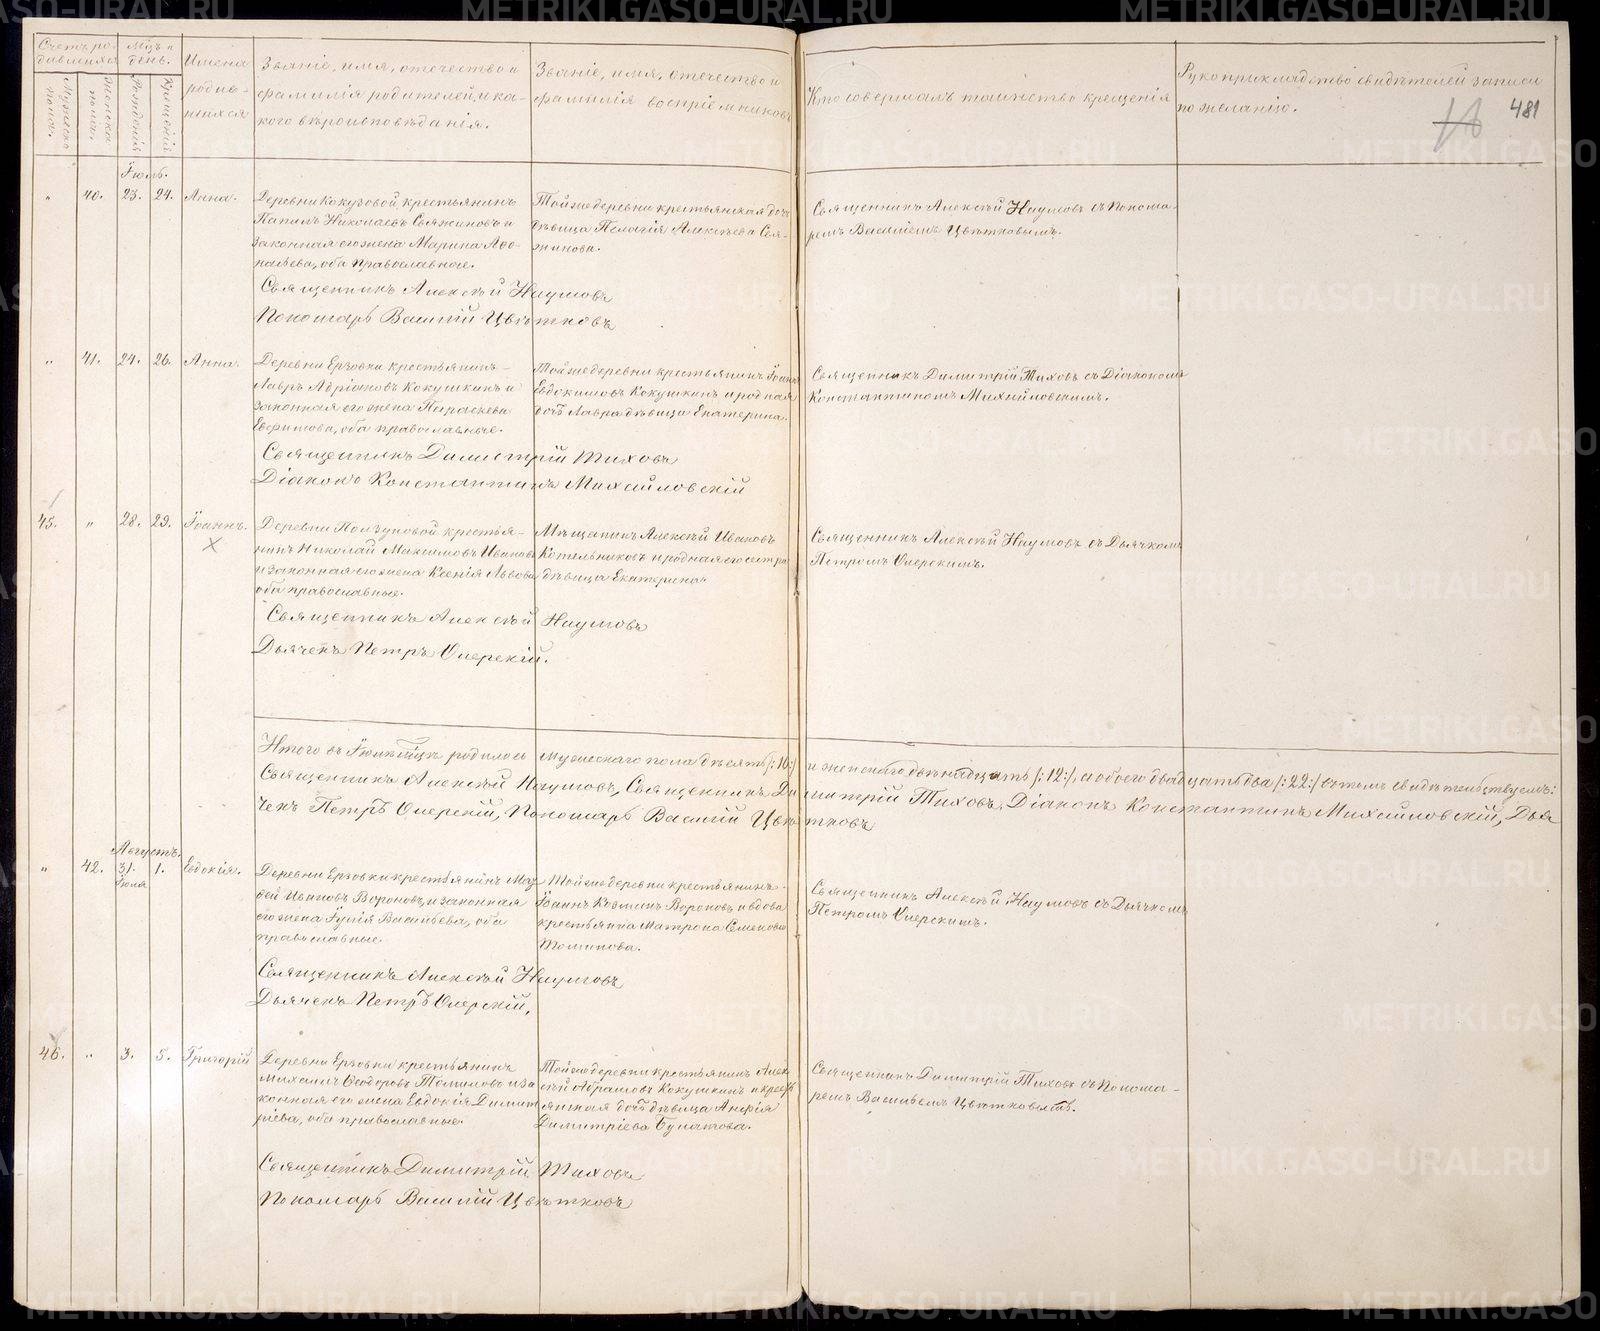 Счетъ ро-
дившихся
Мужеска
пола.
Женска
пола.
Мѣсяцъ и
день.
Рожденія
Крещенія
Имена
родив-
шихся
Званіе, имя, отечество и
фамилія родителей, и ка-
кого вѣроисповѣданія.
Званіе, имя, отечество и
фамилія воспріемниковъ
Кто совершалъ таинство крещенія
Рукоприкладство свидѣтелей записи
по желанію.
481
Іюль.
" 40. 23. 24. Анна.
Деревни Кокузовой крестьянинъ
Николаевъ Свяжиновъ и
законная его жена Марина Аѳо-
насьева, оба православные.
Тойже деревни крестьянская дочь
дѣвица Пелагія Алексѣева Свя-
жинова.
Священникъ Алексѣй Наумовъ съ Понома-
ремъ Василіемъ Цвѣтковымъ.
Священникъ Алексѣй Наумовъ
Пономарь Василій Цвѣтковъ
" 41. 24. 26. Анна.
Деревни Ерзовки крестьянинъ
Лавръ Адріановъ Кокушкинъ и
законная его жена Параскева
Евфимова, оба православные.
Тойже деревни крестьянинъ Іоаннъ
Евдокимовъ Кокушкинъ и родная
дочь Лавра дѣвица Екатерина.
Священникъ Димитрій Тиховъ съ Діакономъ
Константиномъ Михайловскимъ.
Священникъ Димитрій Тиховъ
Діаконъ Константинъ Михайловскій
45. " 28. 29. Іоаннъ.
Деревни крестья-
нинъ Николай Максимовъ Ивановъ
и законная его жена Ксенія Львова
оба православные.
Мѣщанинъ Алексѣй Ивановъ
Котельниковъ и родная его сестра
дѣвица Екатерина.
Священникъ Алексѣй Наумовъ съ Дьячкомъ
Петромъ Озерскимъ.
Священникъ Алексѣй Наумовъ
Дьячекъ Петръ Озерскій.
Итого въ Іюлѣ мцѣ родилось мужескаго пола десять /:10:/ и женскаго двѣнадцать /:12:/, а обоего двадцать два /:22:/ въ томъ свидѣтельствуемъ:
Священникъ Алексѣй Наумовъ, Священникъ Димитрій Тиховъ, Діаконъ Константинъ Михайловскій, Дья
чекъ Петръ Озерскій, Пономарь Василій Цвѣтковъ
Августъ.
" 42. 31. 1. Евдокія.
Іюля
Деревни Ерзовки крестьянинъ
Ивановъ Вороновъ, и законная
его жена Іулія Васильева, оба
православные.
Тойже деревни крестьянинъ
Іоаннъ Козминъ Вороновъ и вдова
крестьянка Матрона Семенова
Томилова.
Священникъ Алексѣй Наумовъ съ Дьячкомъ
Петромъ Озерскимъ.
Священникъ Алексѣй Наумовъ
Дьячекъ Петръ Озерскій,
46. " 3. 5. Григорій
Деревни Ерзовки крестьянинъ
Михаилъ Ѳеодоровъ Томиловъ и за
конная его жена Евдокія Димит
ріева, оба православные.
Тойже деревни крестьянинъ Алек
сѣй Абрамовъ Кокушкинъ и кресть
янская дочь дѣвица Анфія
Димитріева Булатова.
Священникъ Димитрій Тиховъ съ Понома-
ремъ Васильемъ Цвѣтковымъ.
Священникъ Димитрій Тиховъ
Пономарь Василій Цвѣтковъ
METRIKI.GASO-URAL.RU